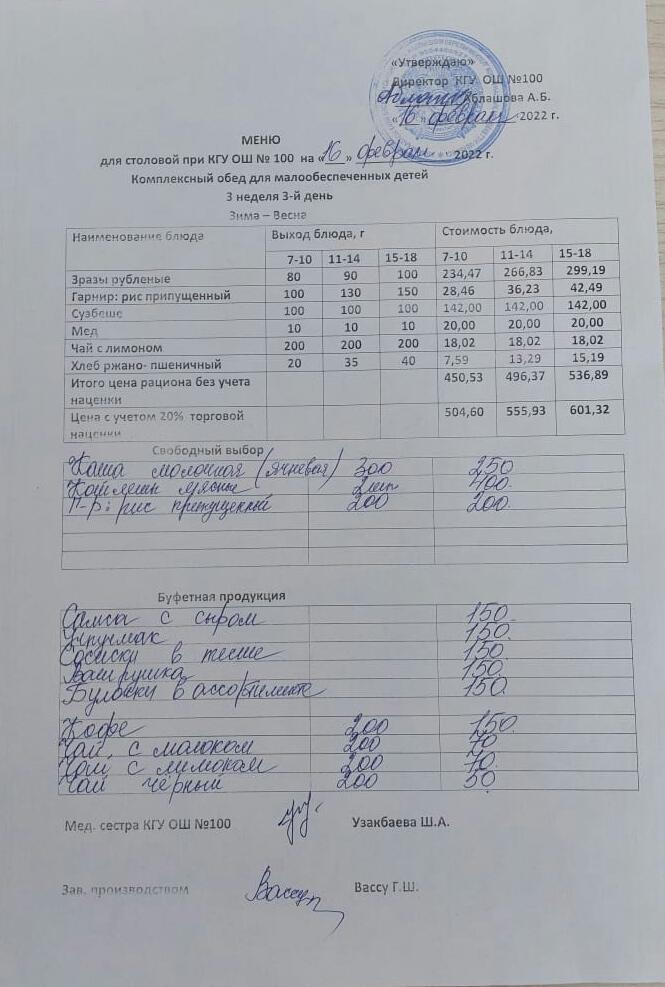 «Утверждаю»
Директор КГУ ОШ №100
Аблашова А.Б.
«16» феврал 2022 г.
МЕНЮ
для столовой при КГУ ОШ № 100 на «16» феврал 2022 г.
Комплексный обед для малообеспеченных детей
3 неделя 3-й день
Зима – Весна
Наименование блюда Выход блюда, г Стоимость блюда,
7-10 11-14 15-18 7-10 11-14 15-18
Зразы рубленые 80 90 100 234,47 266,83 299,19
Гарнир: рис припущенный 100 130 150 28,46 36,23 42,49
Сузбеше 100 100 100 142,00 142,00 142,00
Мед 10 10 10 20,00 20,00 20,00
Чай с лимоном 200 200 200 18,02 18,02 18,02
Хлеб ржано- пшеничный 20 35 40 7,59 13,29 15,19
Итого цена рациона без учета 450,53 496,37 536,89
наценки
Цена с учетом 20% торговой 504,60 555,93 601,32
наценки
Свободный выбор
Каша молочная (ячневая) 300 250
Котлеты мясные 2шт 400
Г-р: рис припущенный 200 200
Буфетная продукция
Самса с сыром 150
150
Сосиски в тесте 150
Ватрушка 150
Булочки в ассортименте 150
Кофе 200 150
Чай с молоком 200 70
Чай с лимоном 200 70
Чай черный 200 50
Мед. сестра КГУ ОШ №100 Узакбаева Ш.А.
Зав. производством Вассу Г.Ш.